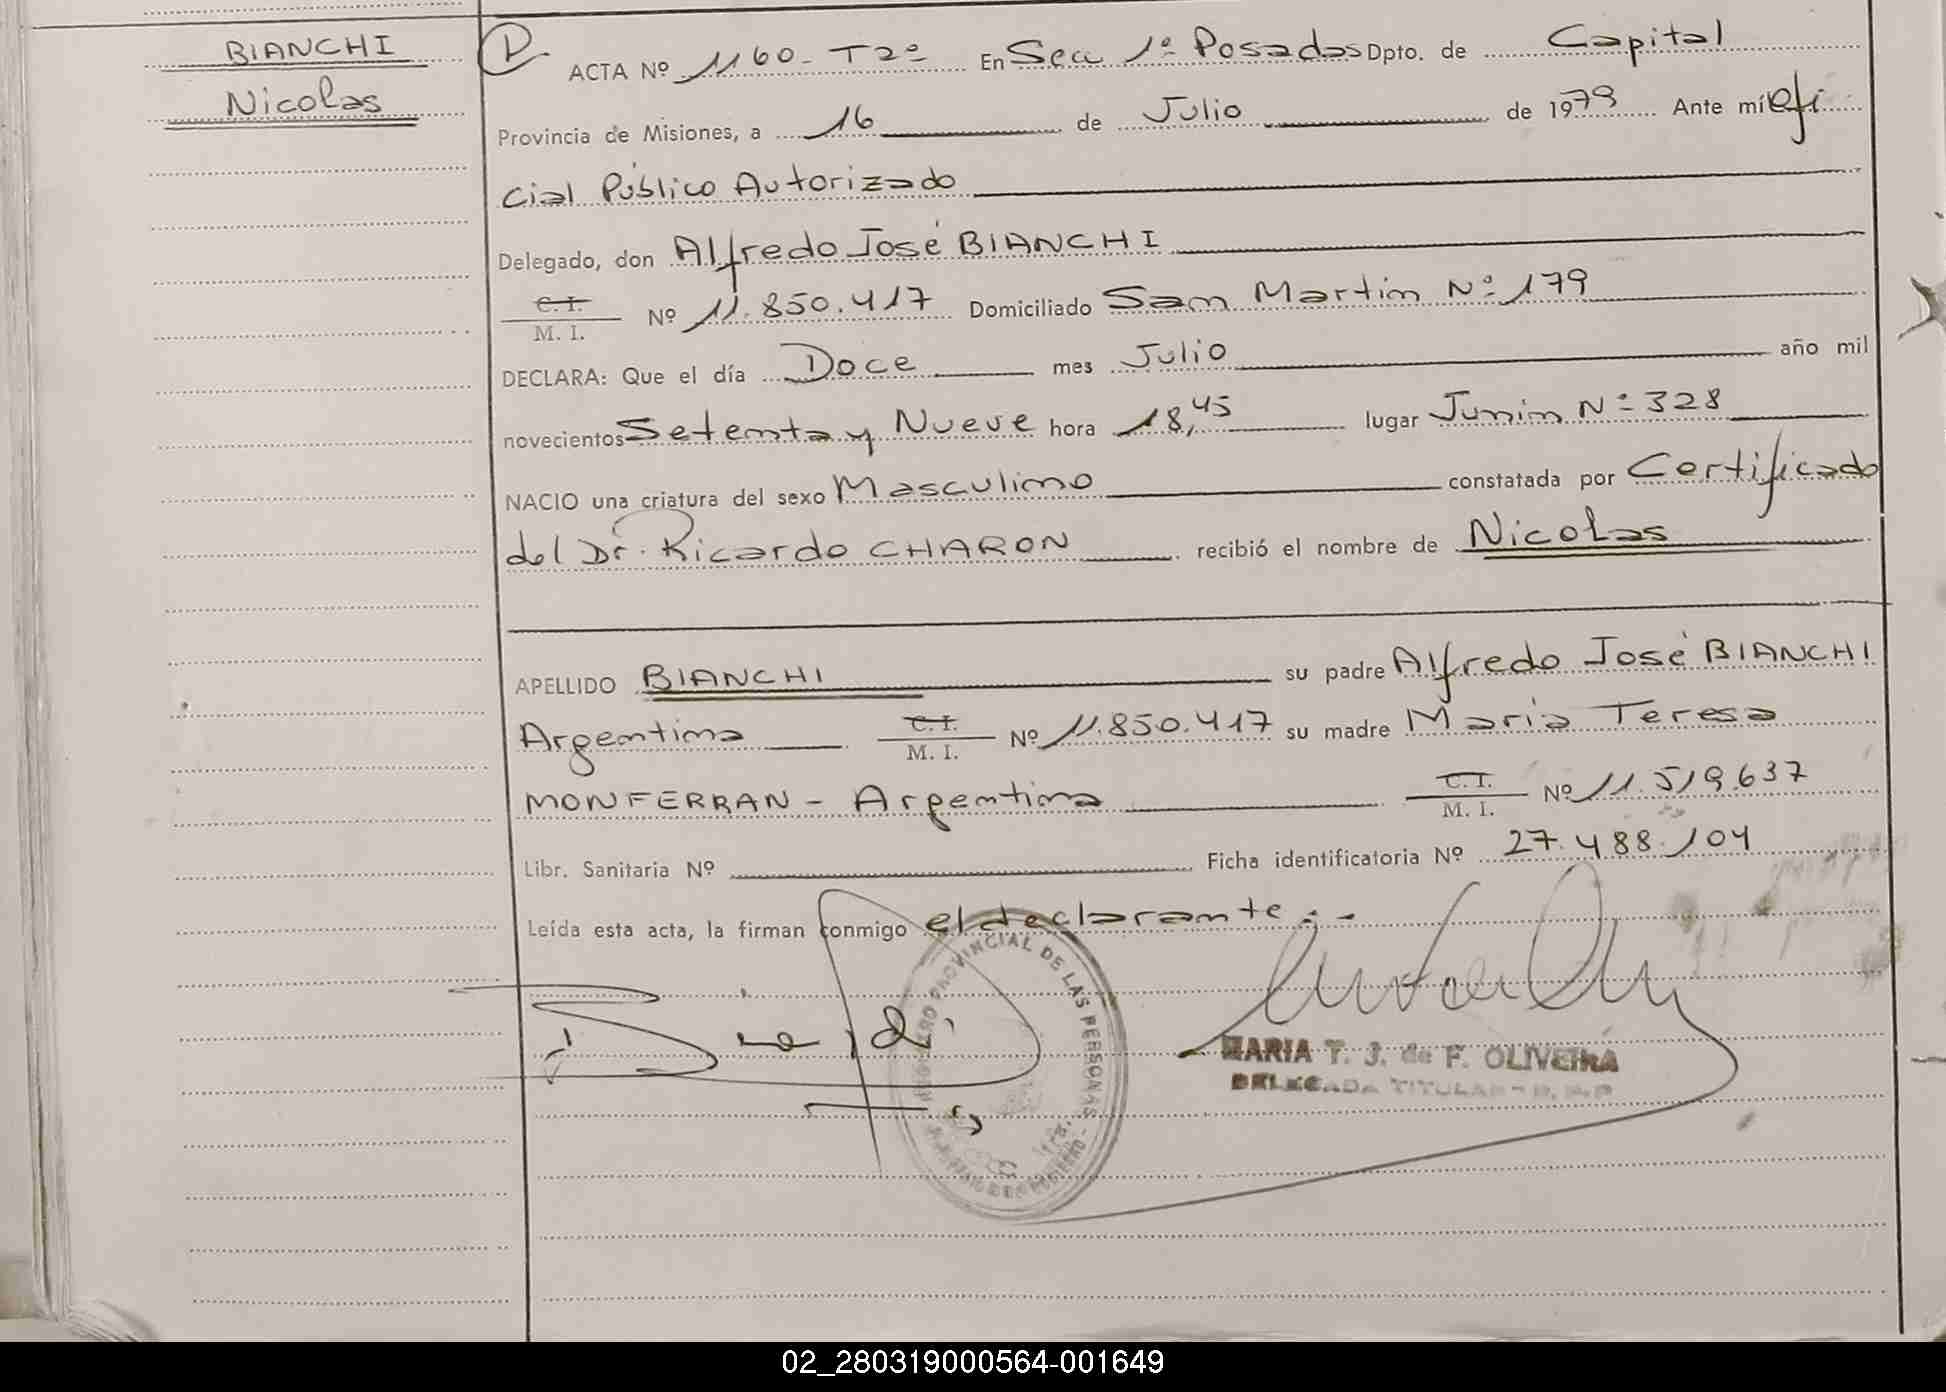 BIANCHI
Nicolas
ACTA Nº 1160- T2º En Secc 1º Posadas Dpto. de Capital
Provincia de Misiones, a 16 de Julio de 1979 Ante mí Ofi
cial Público Autorizado
Delegado, don Alfredo José BIANCHI
C.I. / M. I. Nº 11.850.417 Domiciliado San Martin Nº 179
DECLARA: Que el día Doce mes Julio año mil
novecientos Setenta y Nueve hora 18,45 lugar Junin Nº 328
NACIO una criatura del sexo Masculino constatada por Certificado
del Dr. Ricardo CHARON recibió el nombre de Nicolas
APELLIDO BIANCHI su padre Alfredo José BIANCHI
Argentino C.I. / M. I. Nº 11.850.417 su madre María Teresa
MONFERRAN - Argentina C.I. / M. I. Nº 11.519.637
Libr. Sanitaria Nº Ficha identificatoria Nº 27.488.104
Leída esta acta, la firman conmigo el declarante.-
PROVINCIAL DE LAS PERSONAS
MARIA T. J. de F. OLIVEIRA
DELEGADA TITULAR
02_280319000564-001649